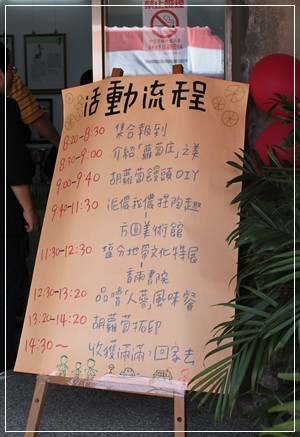 禁止吸菸
活動流程
8:20-8:30 集合報到
8:30-9:00 介紹「蘿蔔庄」之美
9:00-9:40 胡蘿蔔饅頭DIY
9:40-11:30 泥儂我儂捏陶趣
|
方圓美術館
11:30-12:30 鹽分地帶文化特展
|
香雨書院
12:30-13:20 品嚐「人蔘」風味餐
13:20-14:20 胡蘿蔔拓印
14:30~ 收獲滿滿,回家去